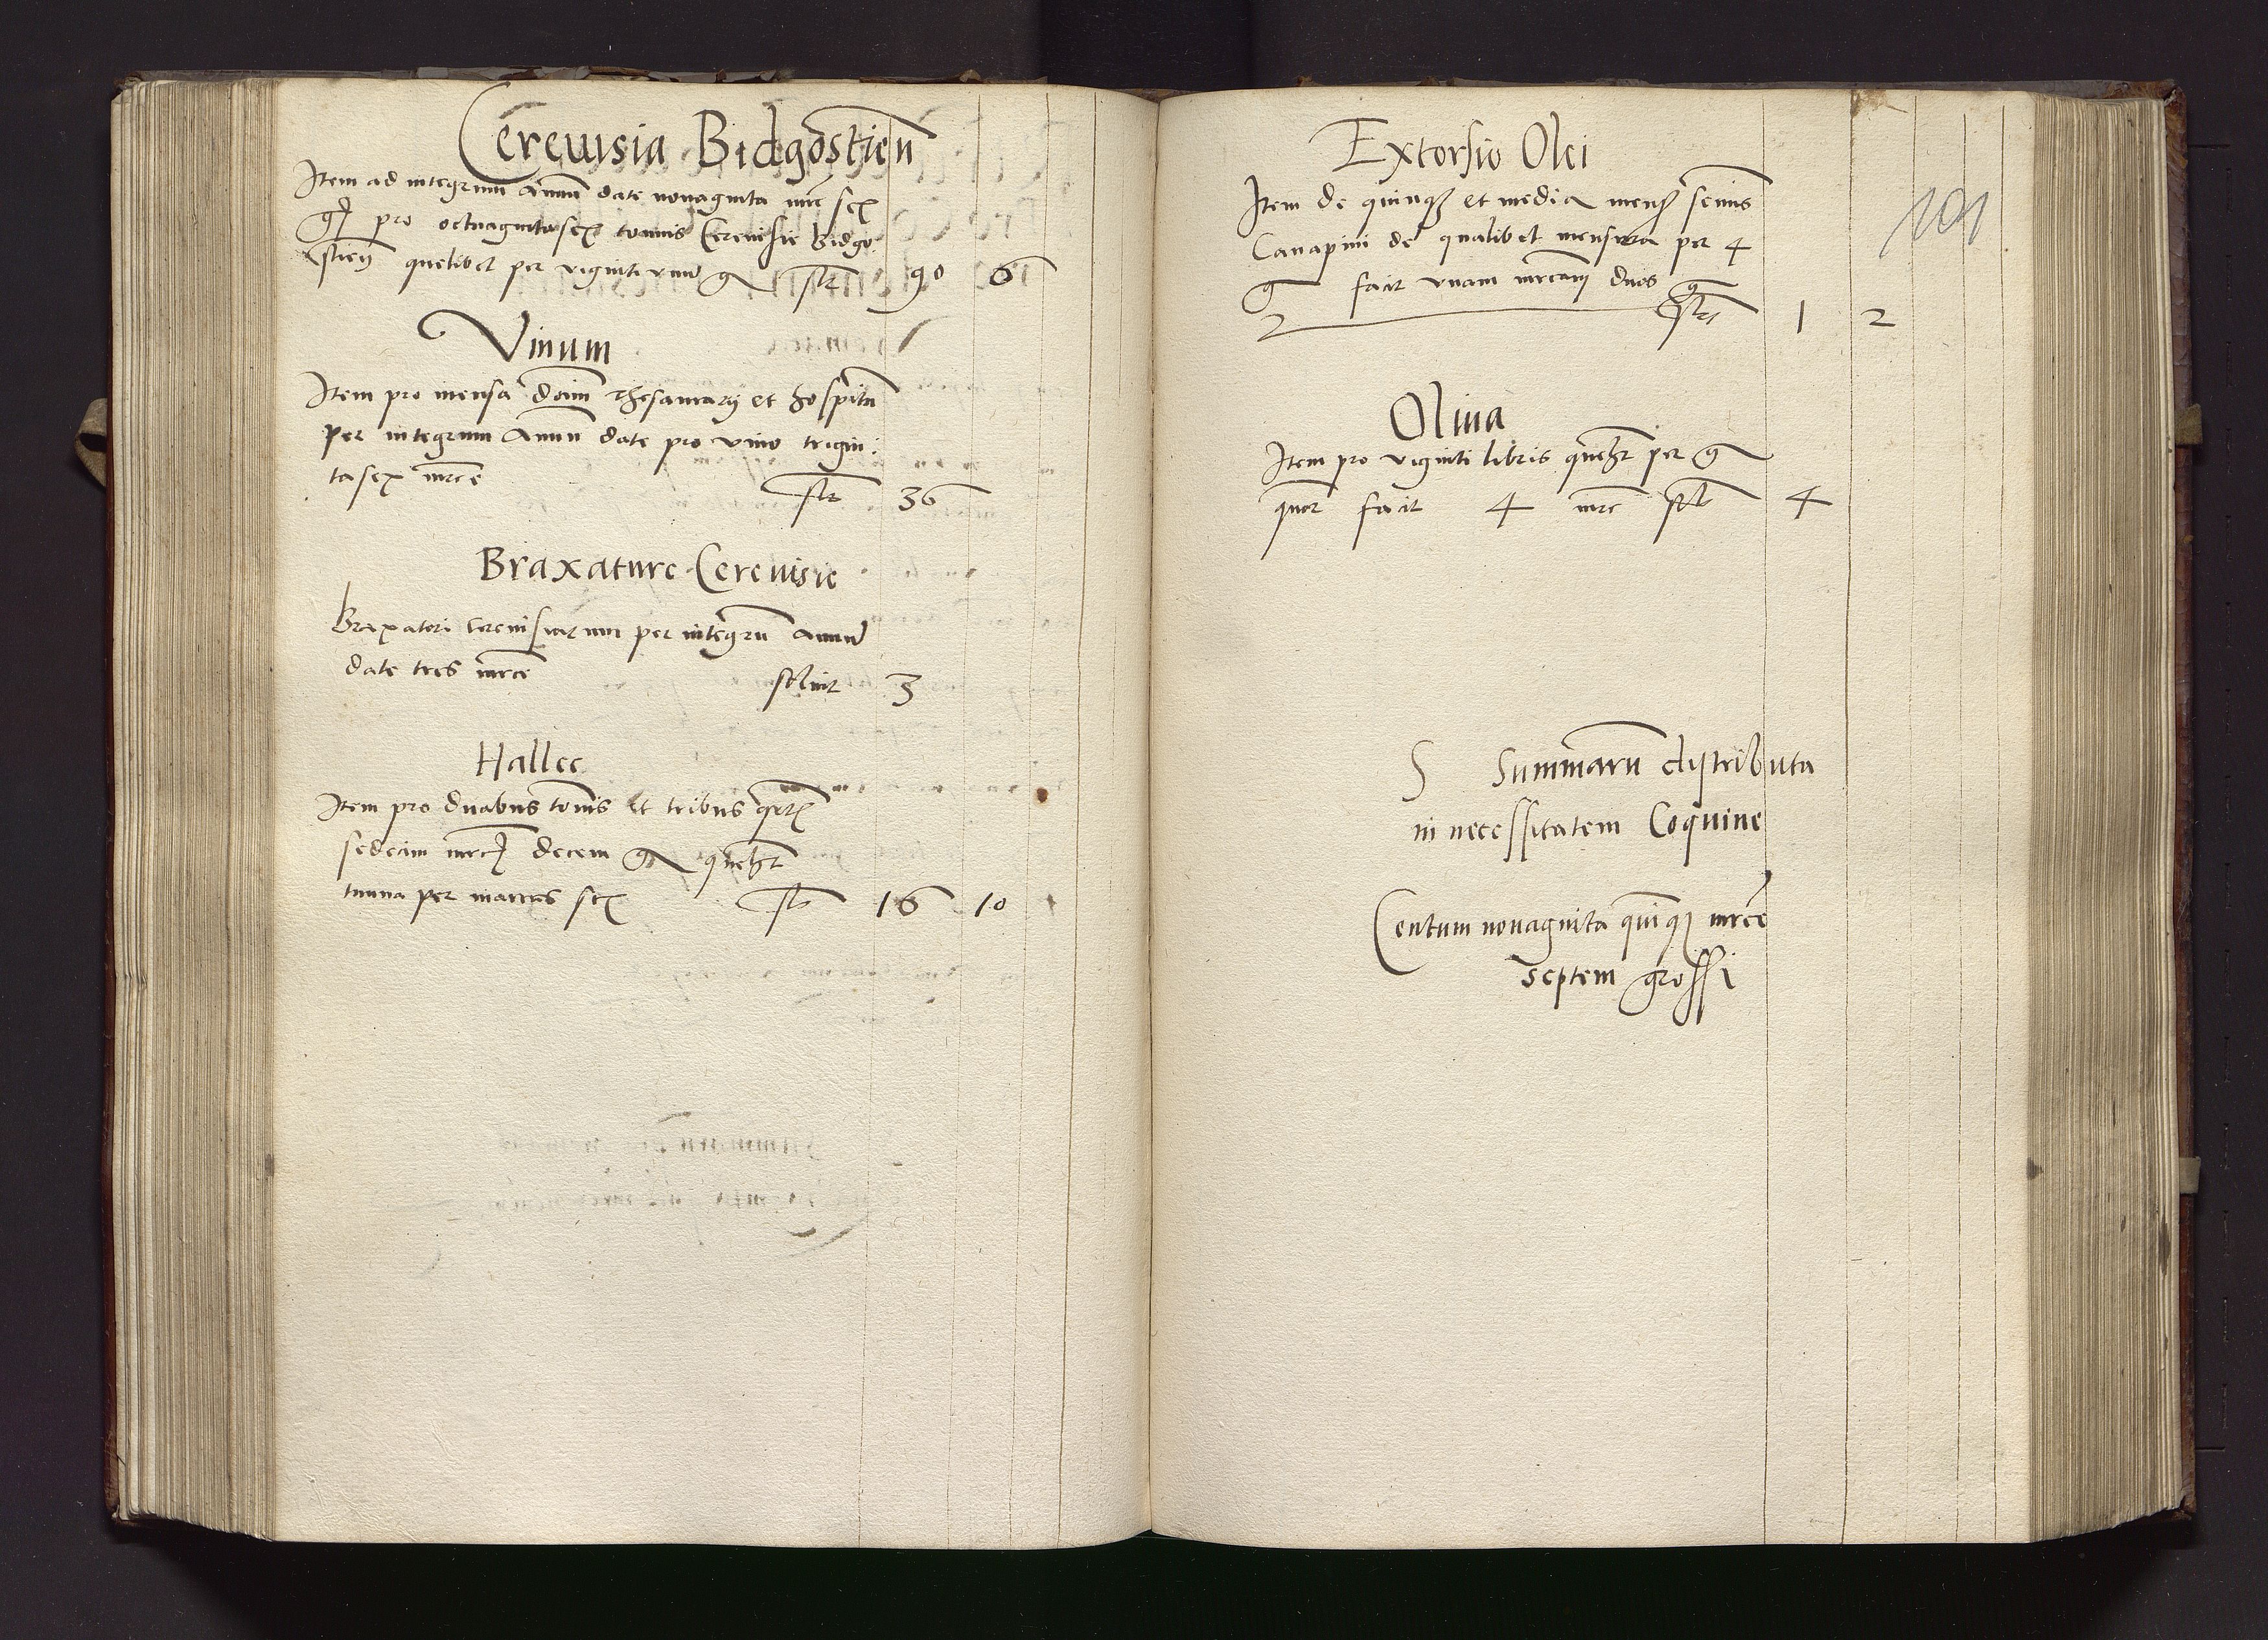 Cereuisia Bidgostien̄
Item ad integrum Annū date nonaginta mrc̄e sex
gͥ pro octuagintasex tonnis Cereuisie Bidgo-
stien̄ quelibet per viginti vnū ḡ fl̄t 90 6
Vinum
Item pro mensa dom̄i Thesaurarij et hospitū
per integrum Annū date pro vino trigin:
tasex mrc̄e
fl̄t 36
Braxature Cereuisie
Braxatori cereuisiarum per integrū annū
date tres mrc̄e
soluit 3
Hallec
Item pro duabus ton̄is et tribus
sedecim mrc̄ decem ḡ quel̄t
tunna per marcas sex fl̄t 16 10
Extorsio Olei
101
Item de quinqꝫ et media mens̄ semīs
Canapini de qualibet mensura per 4
ḡ facit vnam mrcam̄ duos ḡ
fl̄t 1 2
Oliua
Item pro viginti libris quel̄t per ḡ
quor̄ facit 4 mrc̄ fl̄t 4
S Summarū distributa
in necessitatem Coquine
Centum nonaginta quīqꝫ mrc̄e
septem grossi